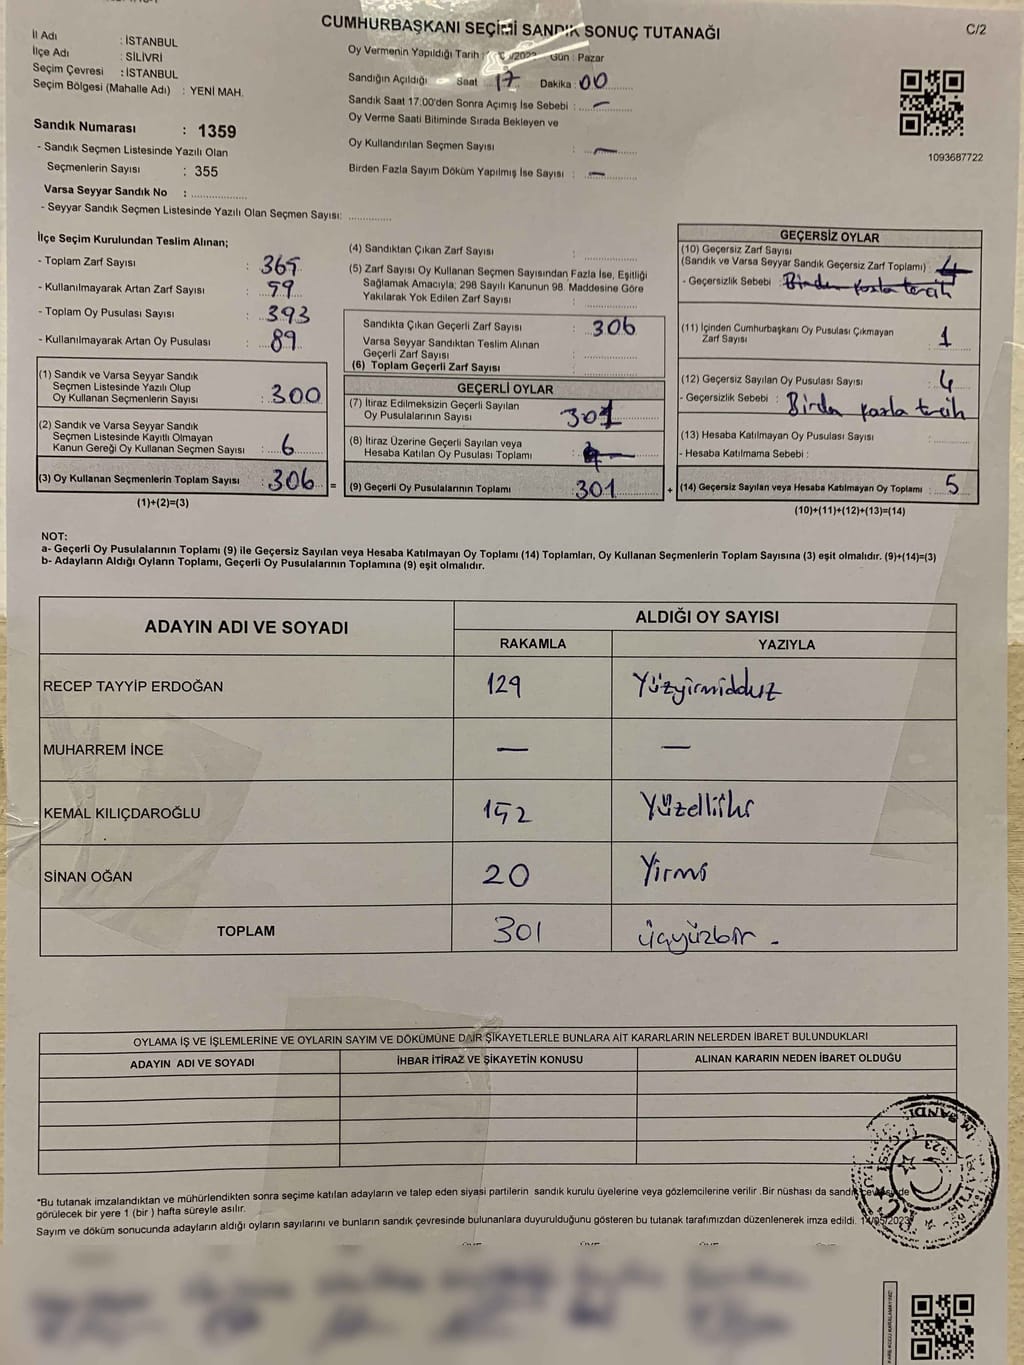 CUMHURBAŞKANI SEÇİMİ SANDIK SONUÇ TUTANAĞI
C/2
İl Adı : İSTANBUL
İlçe Adı : SİLİVRİ
Seçim Çevresi : İSTANBUL
Seçim Bölgesi (Mahalle Adı) : YENİ MAH.
Sandık Numarası : 1359
- Sandık Seçmen Listesinde Yazılı Olan
Seçmenlerin Sayısı : 355
Varsa Seyyar Sandık No : ..................
- Seyyar Sandık Seçmen Listesinde Yazılı Olan Seçmen Sayısı: ..............
Oy Vermenin Yapıldığı Tarih : /2023 Gün : Pazar
Sandığın Açıldığı Saat 17 Dakika : 00
Sandık Saat 17:00'den Sonra Açımış İse Sebebi : —
Oy Verme Saati Bitiminde Sırada Bekleyen ve
Oy Kullandırılan Seçmen Sayısı : —
Birden Fazla Sayım Döküm Yapılmış İse Sayısı : —
1093687722
İlçe Seçim Kurulundan Teslim Alınan;
- Toplam Zarf Sayısı : 365
- Kullanılmayarak Artan Zarf Sayısı : 59
- Toplam Oy Pusulası Sayısı : 393
- Kullanılmayarak Artan Oy Pusulası : 89
(1) Sandık ve Varsa Seyyar Sandık
Seçmen Listesinde Yazılı Olup
Oy Kullanan Seçmenlerin Sayısı : 300
(2) Sandık ve Varsa Seyyar Sandık
Seçmen Listesinde Kayıtlı Olmayan
Kanun Gereği Oy Kullanan Seçmen Sayısı : 6
(3) Oy Kullanan Seçmenlerin Toplam Sayısı : 306 =
(1)+(2)=(3)
(4) Sandıktan Çıkan Zarf Sayısı :
(5) Zarf Sayısı Oy Kullanan Seçmen Sayısından Fazla İse, Eşitliği
Sağlamak Amacıyla; 298 Sayılı Kanunun 98. Maddesine Göre
Yakılarak Yok Edilen Zarf Sayısı :
Sandıkta Çıkan Geçerli Zarf Sayısı : 306
Varsa Seyyar Sandıktan Teslim Alınan
Geçerli Zarf Sayısı :
(6) Toplam Geçerli Zarf Sayısı :
GEÇERLİ OYLAR
(7) İtiraz Edilmeksizin Geçerli Sayılan
Oy Pusulalarının Sayısı : 301
(8) İtiraz Üzerine Geçerli Sayılan veya
Hesaba Katılan Oy Pusulası Toplamı :
(9) Geçerli Oy Pusulalarının Toplamı : 301 +
GEÇERSİZ OYLAR
(10) Geçersiz Zarf Sayısı
(Sandık ve Varsa Seyyar Sandık Geçersiz Zarf Toplamı) : 4
- Geçersizlik Sebebi : Birden fazla tercih
(11) İçinden Cumhurbaşkanı Oy Pusulası Çıkmayan
Zarf Sayısı : 1
(12) Geçersiz Sayılan Oy Pusulası Sayısı : 4
- Geçersizlik Sebebi : Birda fazla tercih
(13) Hesaba Katılmayan Oy Pusulası Sayısı :
- Hesaba Katılmama Sebebi :
(14) Geçersiz Sayılan veya Hesaba Katılmayan Oy Toplamı : 5
(10)+(11)+(12)+(13)=(14)
NOT:
a- Geçerli Oy Pusulalarının Toplamı (9) ile Geçersiz Sayılan veya Hesaba Katılmayan Oy Toplamı (14) Toplamları, Oy Kullanan Seçmenlerin Toplam Sayısına (3) eşit olmalıdır. (9)+(14)=(3)
b- Adayların Aldığı Oyların Toplamı, Geçerli Oy Pusulalarının Toplamına (9) eşit olmalıdır.
ADAYIN ADI VE SOYADI
ALDIĞI OY SAYISI
RAKAMLA YAZIYLA
RECEP TAYYİP ERDOĞAN 129 Yüzyirmidduz
MUHARREM İNCE — —
KEMAL KILIÇDAROĞLU 152 Yüzelliiki
SİNAN OĞAN 20 Yirmi
TOPLAM 301 üçyüzbir .
OYLAMA İŞ VE İŞLEMLERİNE VE OYLARIN SAYIM VE DÖKÜMÜNE DAİR ŞİKAYETLERLE BUNLARA AİT KARARLARIN NELERDEN İBARET BULUNDUKLARI
ADAYIN ADI VE SOYADI İHBAR İTİRAZ VE ŞİKAYETİN KONUSU ALINAN KARARIN NEDEN İBARET OLDUĞU
*Bu tutanak imzalandıktan ve mühürlendikten sonra seçime katılan adayların ve talep eden siyasi partilerin sandık kurulu üyelerine veya gözlemcilerine verilir .Bir nüshası da sandık çevresinde
görülecek bir yere 1 (bir ) hafta süreyle asılır.
Sayım ve döküm sonucunda adayların aldığı oyların sayılarını ve bunların sandık çevresinde bulunanlara duyurulduğunu gösteren bu tutanak tarafımızdan düzenlenerek imza edildi. 14/05/2023